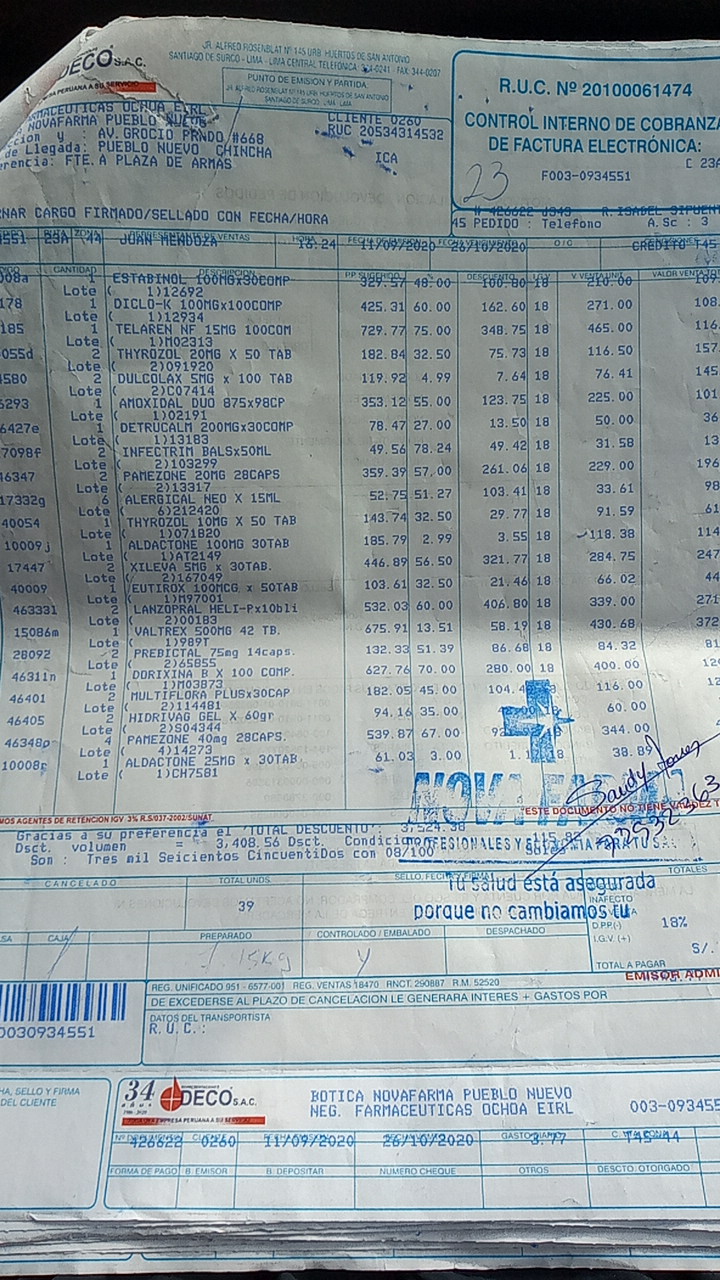 DECO S.A.C.
JR. ALFRED ROSENBLAT Nº 145 URB. HUERTOS DE SAN ANTONIO
SANTIAGO DE SURCO - LIMA - LIMA CENTRAL TELEFONICA: FAX: 344-0207
PERUANA A SU SERVICIO
PUNTO DE EMISIÓN Y PARTIDA:
SANTIAGO DE SURCO - LIMA - LIMA
R.U.C. Nº 20100061474
CONTROL INTERNO DE COBRANZA
DE FACTURA ELECTRÓNICA:
23
F003-0934551 C 23A
FARMACEUTICAS OCHOA EIRL CLIENTE 0260
NOVAFARMA PUEBLO NUEVO RUC 20534314532
cion y : AV. GROCIO PRADO #668
de Llegada: PUEBLO NUEVO CHINCHA ICA
erencia: FTE. A PLAZA DE ARMAS
NAR CARGO FIRMADO/SELLADO CON FECHA/HORA
# 426622 J345 R. ISABEL
PEDIDO : Telefono A.Sc : 3
23A JUAN MENDOZA 16:24 11/09/2020 26/10/2020 CREDITO T45
CANTIDAD DESCRIPCION PP SUGERIDO % DESCUENTO I.G.V V VENTA UNIT. VALOR VENTA
008a 1 ESTABINOL 100MGx30COMP 329.57 48.00 100.80 18 210.00 109
Lote ( 1)12692
178 1 DICLO-K 100MGx100COMP 425.31 60.00 162.60 18 271.00 108
Lote ( 1)12934
185 1 TELAREN NF 15MG 100COM 729.77 75.00 348.75 18 465.00 116
Lote ( 1)M02313
055d 2 THYROZOL 20MG X 50 TAB 182.84 32.50 75.73 18 116.50 157
Lote ( 2)091920
4580 2 DULCOLAX 5MG x 100 TAB 119.92 4.99 7.64 18 76.41 145
Lote ( 2)C07414
6293 1 AMOXIDAL DUO 875x98CP 353.12 55.00 123.75 18 225.00 101
Lote ( 1)02191
6427e 1 DETRUCALM 200MGx30COMP 78.47 27.00 13.50 18 50.00 36
Lote ( 1)13183
7098f 2 INFECTRIM BALSx50ML 49.56 78.24 49.42 18 31.58 13
Lote ( 2)103299
46347 2 PAMEZONE 20MG 28CAPS 359.39 57.00 261.06 18 229.00 196
Lote ( 2)13317
17332g 6 ALERGICAL NEO X 15ML 52.75 51.27 103.41 18 33.61 98
Lote ( 6)212420
40054 1 THYROZOL 10MG X 50 TAB 143.74 32.50 29.77 18 91.59 61
Lote ( 1)071820
10009j 1 ALDACTONE 100MG 30TAB 185.79 2.99 3.55 18 118.38 114
Lote ( 1)AT2149
17447 2 XILEVA 5MG x 30TAB. 446.89 56.50 321.77 18 284.75 247
Lote ( 2)167049
40009 1 EUTIROX 100MCG x 50TAB 103.61 32.50 21.46 18 66.02 44
Lote ( 1)M97001
463331 2 LANZOPRAL HELI-Px10bli 532.03 60.00 406.80 18 339.00 271
Lote ( 2)001B3
15086m 1 VALTREX 500MG 42 TB. 675.91 13.51 58.19 18 430.68 372
Lote ( 1)989T
28092 2 PREBICTAL 75mg 14caps. 132.33 51.39 86.68 18 84.32 81
Lote ( 2)65855
46311n 1 DORIXINA B X 100 COMP. 627.76 70.00 280.00 18 400.00 12
Lote ( 1)M03873
46401 2 MULTIFLORA PLUSx30CAP 182.05 45.00 104.4 116.00 12
Lote ( 2)114481
46405 2 HIDRIVAG GEL X 60gr 94.16 35.00 60.00
Lote ( 2)S04344
46348p 4 PAMEZONE 40mg 28CAPS. 539.87 67.00 92 344.00
Lote ( 4)14273
10008r 1 ALDACTONE 25MG x 30TAB 61.03 3.00 1.1 18 38.89
Lote ( 1)CH7581
NOVAFARMA
MOS AGENTES DE RETENCION IGV 3% R.S/037-2002/SUNAT.
*ESTE DOCUMENTO NO TIENE VALIDEZ
Gracias a su preferencia el "TOTAL DESCUENTO": 3,524.38
Dsct. volumen = 3,408.56 Dsct. Condicio 115.82
Son : Tres mil Seicientos CincuentiDos con 08/100
Tu salud está asegurada
porque no cambiamos tu
CANCELADO TOTAL UNDS. SELLO, FECHA Y FIRMA TOTALES
39
INAFECTO
V.VENTA
D.P.P.(-) 18%
I.G.V. (+)
S/.
TOTAL A PAGAR
CAJA PREPARADO CONTROLADO / EMBALADO DESPACHADO
EMISOR
REG. UNIFICADO 951 - 6577-001 REG. VENTAS 18470 RNCT. 290887 R.M. 52520
DE EXCEDERSE AL PLAZO DE CANCELACION LE GENERARA INTERES + GASTOS POR
DATOS DEL TRANSPORTISTA
R.U.C.:
0030934551
HA, SELLO Y FIRMA
DEL CLIENTE
34 años
DECO S.A.C.
EMPRESA PERUANA A SU SERVICIO
BOTICA NOVAFARMA PUEBLO NUEVO
NEG. FARMACEUTICAS OCHOA EIRL 003-093455
426622 0260 11/09/2020 26/10/2020 3.77 T45-44
FORMA DE PAGO B. EMISOR B. DEPOSITAR NUMERO CHEQUE OTROS DESCTO. OTORGADO